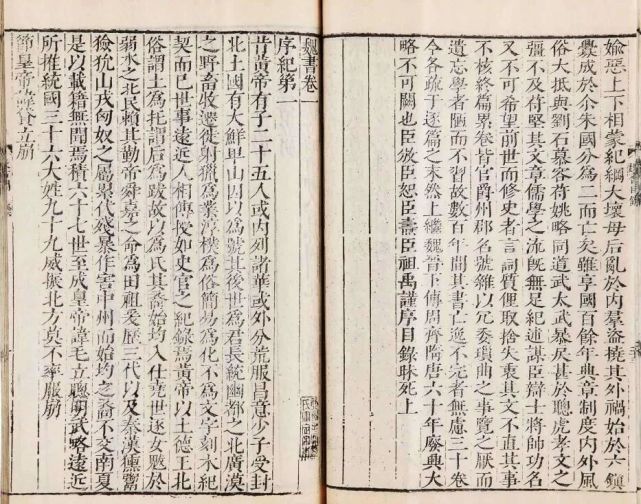 媮惡上下相蒙紀綱大壞母后亂於內羣盜撓其外禍始於六鎮
釁成於尒朱國分為二而亡矣雖享國百餘年典章制度內外風
俗大抵與劉石慕容苻姚略同道武太武暴戾甚於聰虎孝文之
彊不及苻堅其文章儒學之流既無足紀述謀臣辯士將帥功名
又不可希望前世而修史者言詞質俚取捨失衷其文不直其事
不核終篇累卷皆官爵州郡名號雜以冗委瑣曲之事覽之厭而
遺忘學者陋而不習故數百年間其書亡逸不完者無慮三十卷
今各疏于逐篇之末然上繼魏晉下傳周齊隋唐六十年廢興大
略不可闕也臣攽臣恕臣燾臣祖禹謹序目錄昧死上
魏書卷一
序紀第一
昔黃帝有子二十五人或內列諸華或外分荒服昌意少子受封
北土國有大鮮卑山因以為號其後世為君長統幽都之北廣漠
之野畜牧遷徙射獵為業淳樸為俗簡易為化不為文字刻木紀
契而已世事遠近人相傳授如史官之紀錄焉黃帝以土德王北
俗謂土為托謂后為跋故以為氏其裔始均入仕堯世逐女魃於
弱水之北民賴其勤帝舜嘉之命為田祖爰歷三代以及秦漢獯鬻
獫狁山戎匈奴之屬累代殘暴作害中州而始均之裔不交南夏
是以載籍無聞焉積六十七世至成皇帝諱毛立聰明武略遠近
所推統國三十六大姓九十九威振北方莫不率服崩
節皇帝諱貸立崩